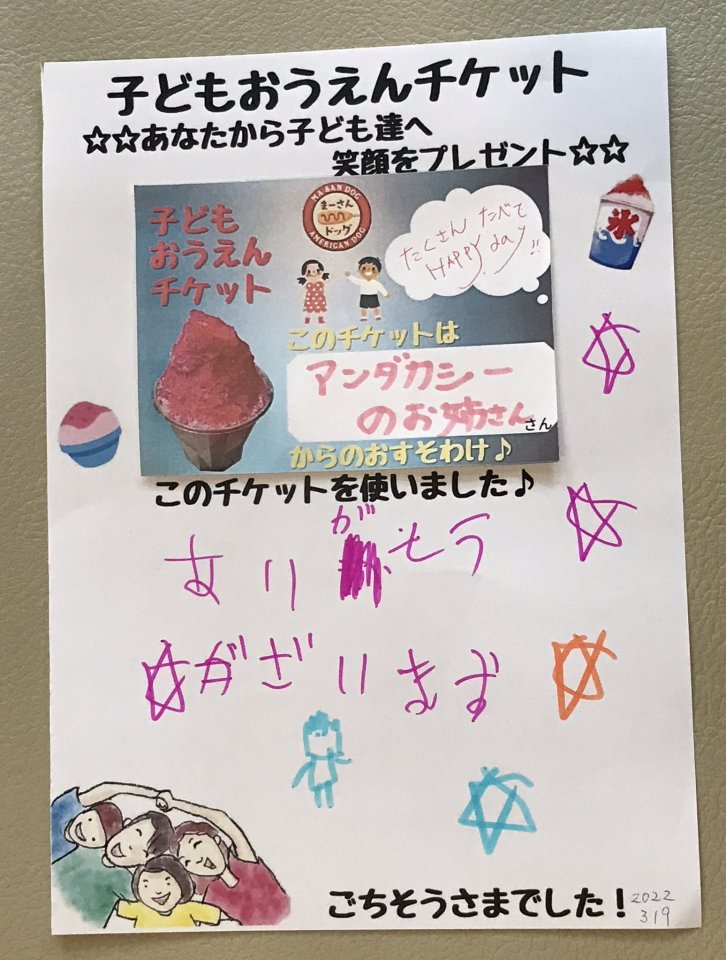 子どもおうえんチケット
☆☆あなたから子ども達へ
笑顔をプレゼント☆☆
子ども
おうえん
チケット
MA SAN DOG
まーさん
ドッグ
AMERICAN DOG
たくさん たべて
HAPPY day!!
氷
このチケットは
アンダカシー
のお姉さん
さん
からのおすそわけ♪
このチケットを使いました♪
ありがとう
がざいます
ごちそうさまでした!
2022
319